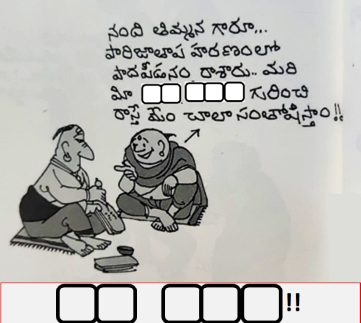 నంది తిమ్మన గారూ...
పారిజాతాప హరణంలో
పాదపీడనం రాశారు.. మరి
మీ గురించి
రాస్తే మేం చాలా సంతోషిస్తాం!!
!!